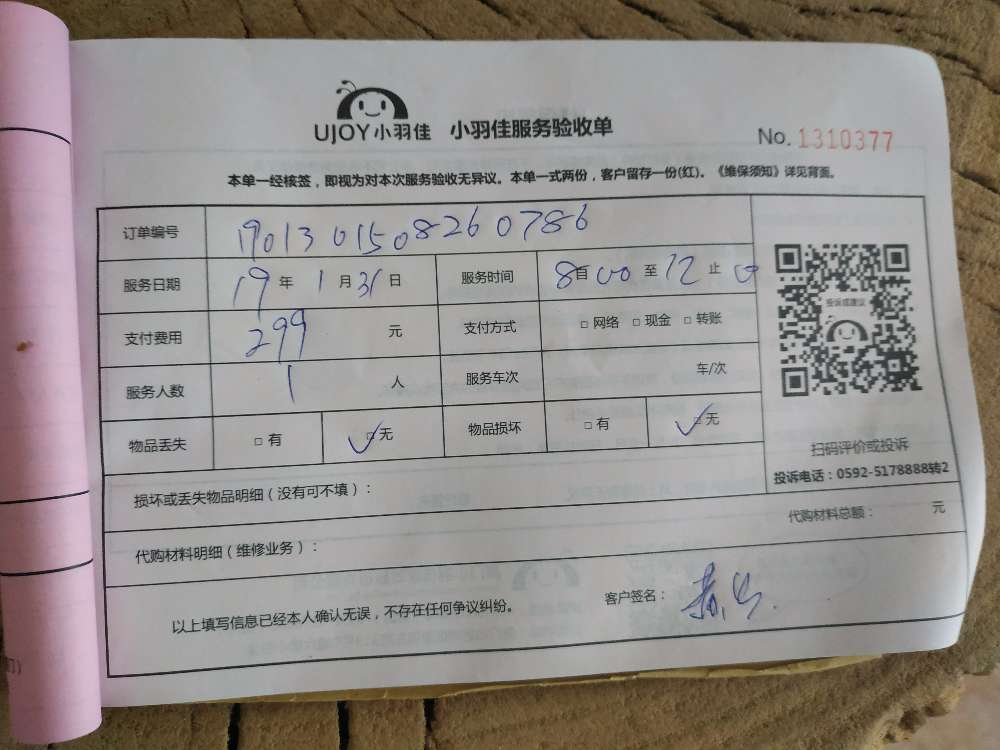 UJOY小羽佳 小羽佳服务验收单
No. 1310377
本单一经核签，即视为对本次服务验收无异议。本单一式两份，客户留存一份(红)。《维保须知》详见背面。
订单编号 1901301508260786
服务日期 19年1月31日 服务时间 8首00至12止00
支付费用 299元 支付方式 □网络 □现金 □转账
服务人数 1人 服务车次 车/次
物品丢失 □有 ✓□无 物品损坏 □有 ✓□无
投诉或建议
扫码评价或投诉
投诉电话：0592-5178888转2
损坏或丢失物品明细（没有可不填）：
代购材料明细（维修业务）： 代购材料总额： 元
以上填写信息已经本人确认无误，不存在任何争议纠纷。 客户签名：